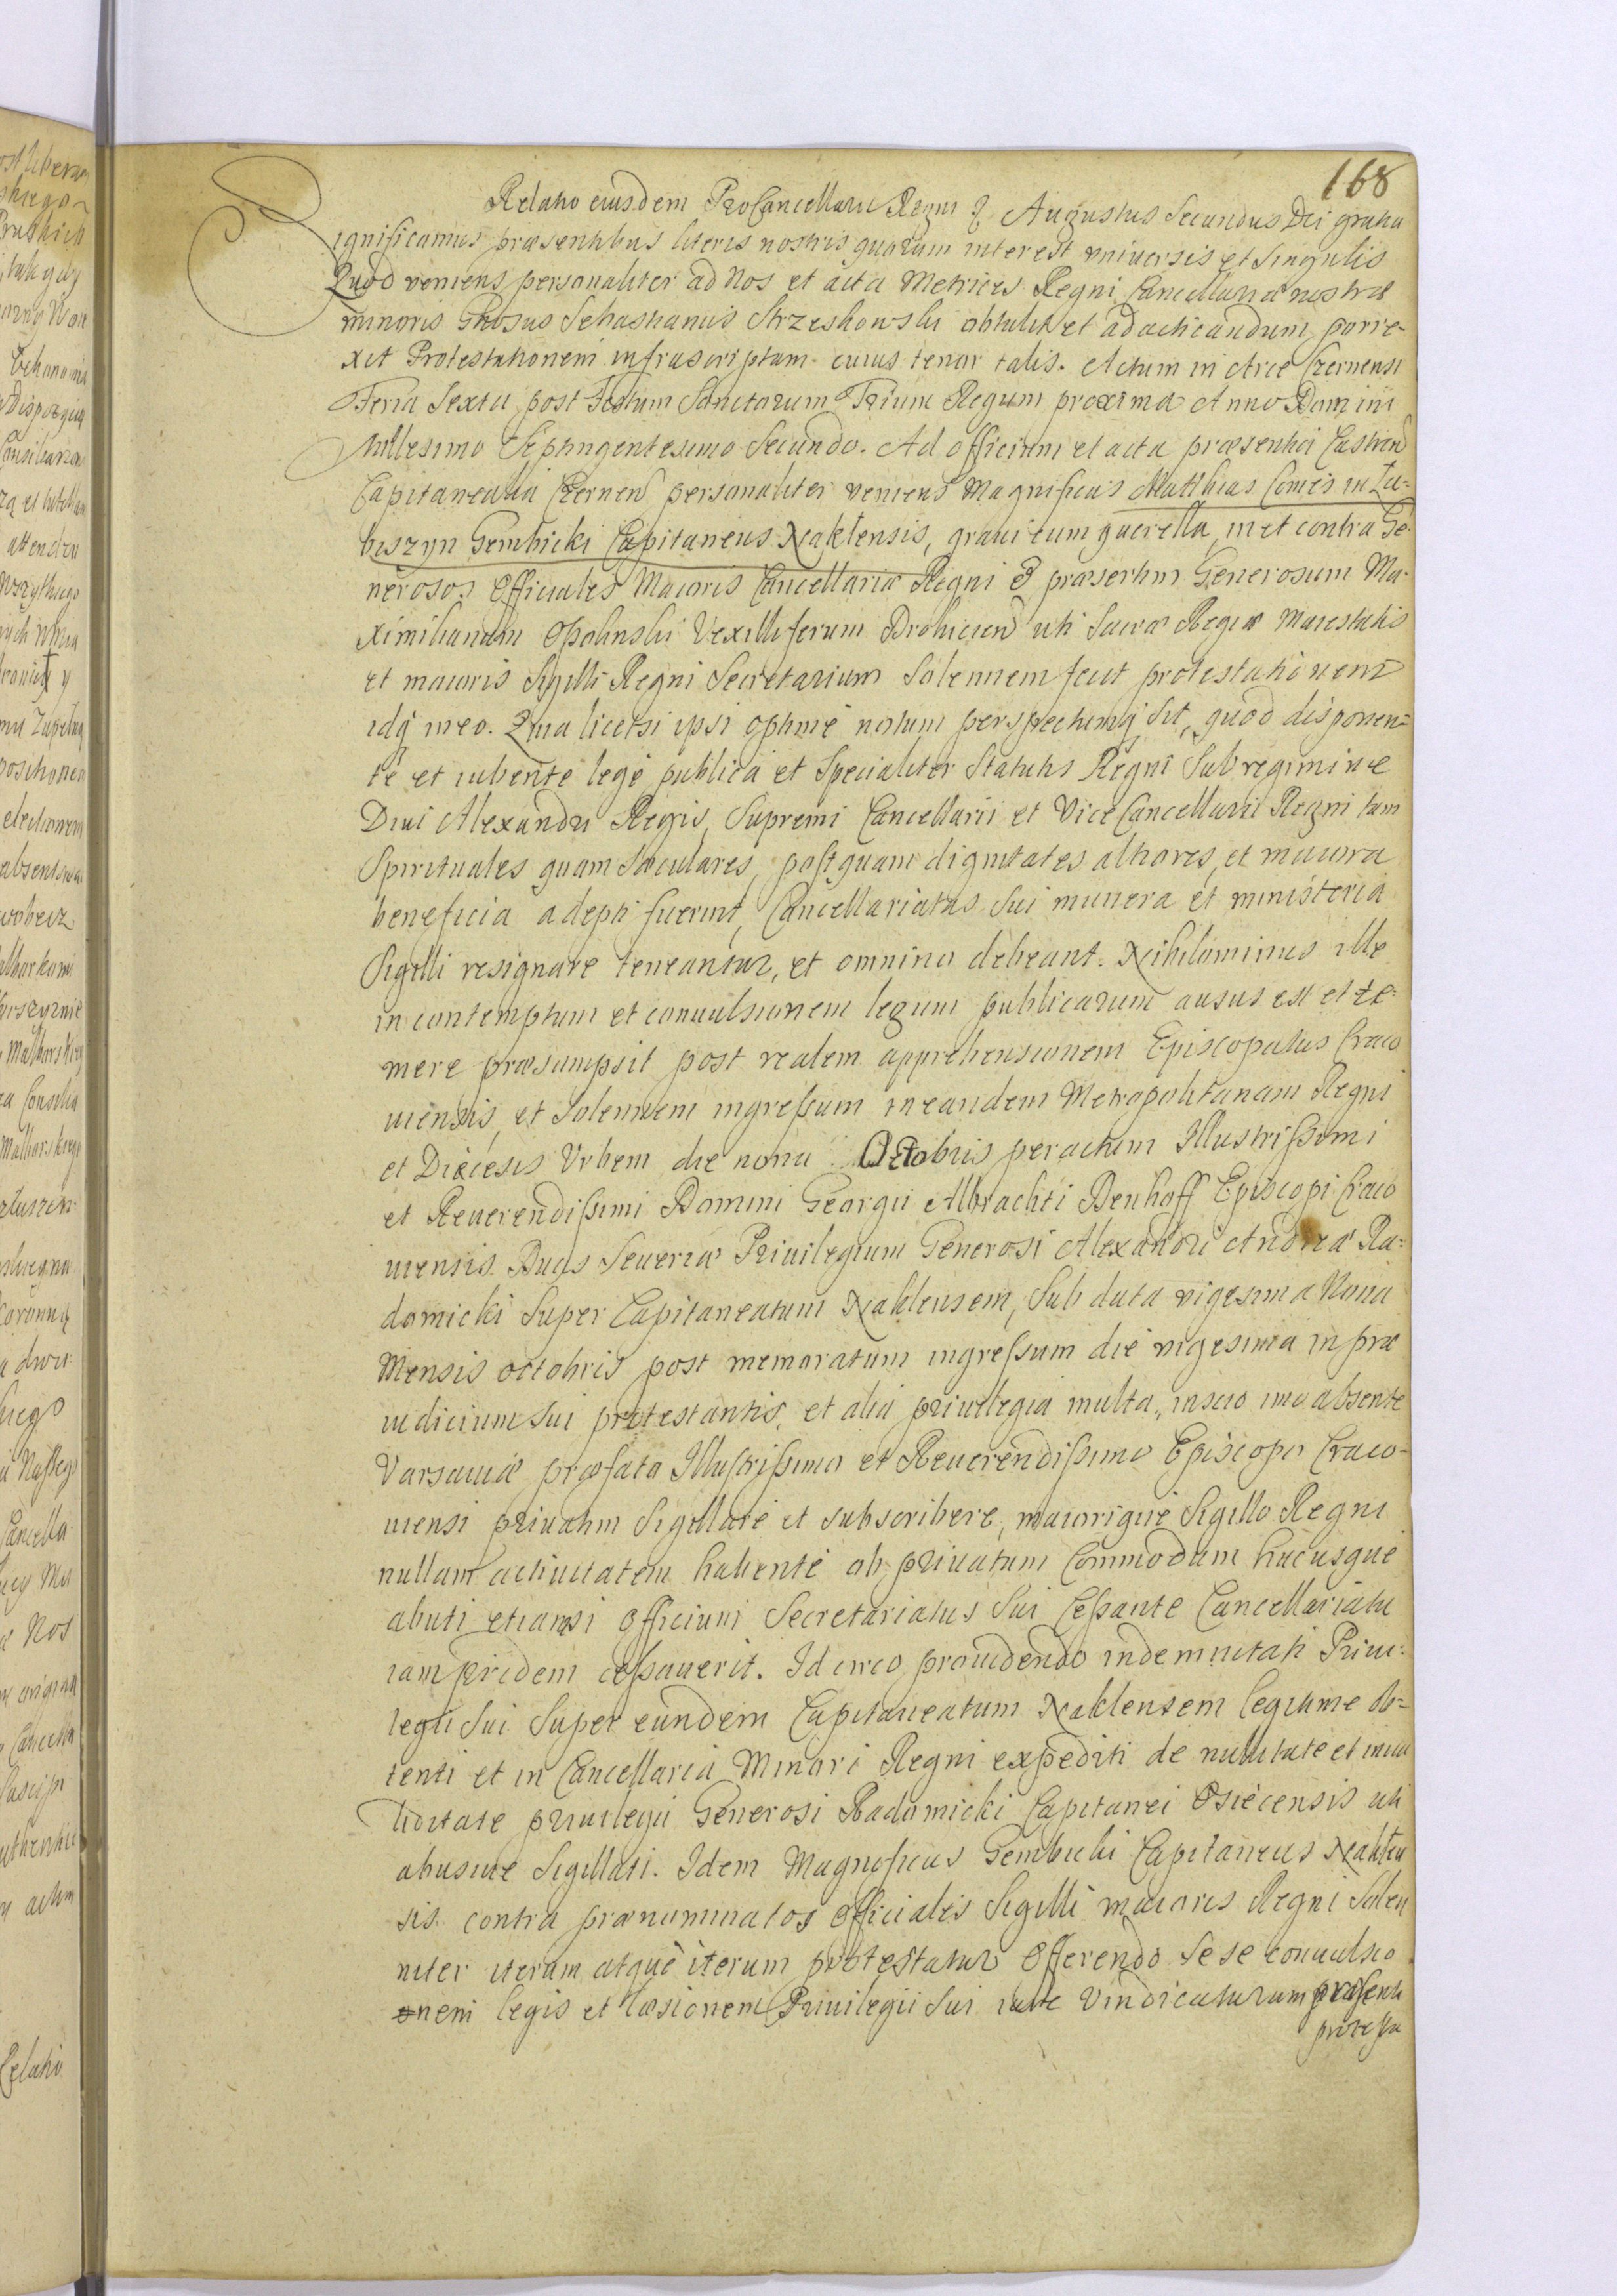 168
Relatio eiusdem ProCancellarii Regni Augustus Secundus Dei gratia
Significamus præsentibus literis nostris quorum interest vniuersis et Singulis
Quod veniens personaliter ad Nos et acta Metrices Regni Cancellariæ nostræ
minoris Gnosus Sebastianus Strzeszkowski obtulit et ad acticandum porre-
xit Protestationem infrascriptam cuius tenor talis. Actum in Arce Czernensi
Feria Sexta post Festum Sanctorum Trium Regum proxima Anno Domini
Millesimo Septingentesimo Secundo. Ad officium et acta præsentia Castren
Capitanealia Czernen personaliter veniens Magnificus Matthias Comes in Ła-
biszyn Gembicki Capitaneus Nakłensis, graui cum quærella, in et contra Ge-
nerosos Officiales Maioris Cancellariæ Regni & præsertim Generosum Ma-
ximilianum Opalinski Vexilliferum Drohicien uti Sacræ Regiæ Maiestatis
et maioris Sigilli Regni Secretarium Solennem fecit protestationem
idq in eo. Quia licetsi ipsi optime notum perspectumq sit, quod disponen-
te et iubente lege publica et Specialiter Statutis Regni Sub regimine
Diui Alexandri Regis, Supremi Cancellarii et Vice Cancellarii Regni tam
Spirituales quam Sæculares, postquam dignitates altiores, et maiora
beneficia adepti fuerint, Cancellariatus Sui munera et ministeria
Sigilli resignare teneantur, et omnino debeant. Nihilominus ille
in contemptum et conuulsionem legum publicarum ausus est et te-
mere præsumpsit post realem apprehensionem Episcopatus Craco
uiensis, et Solennem ingressum in eandem Metropolitanam Regni
et Diæcesis Vrbem die nona Octobris peractum Illustrissimi
et Reuerendissimi Domini Georgii Albrachti Denhoff Episcopi Craco
uiensis Ducis Seueriæ Priuilegium Generosi Alexandri Andreæ Ra-
domicki Super Capitaneatum Naklensem, Sub data vigesima Nona
Mensis octobris post memoratum ingressum die vigesima in præ
iudicium sui protestantis, et alia priuilegia multa, inscio imo absente
Varsauiæ præfato Illustrissimo et Reuerendissimo Episcopo Craco-
uiensi priuatim Sigillare et subscribere, maiorique Sigillo Regni
nullam actiuitatem habente ob priuatum Commodum hucusque
abuti etiamsi Officium Secretariatus Sui Cessante Cancellariatu
iampridem cessauerit. Id circo prouidendo indemnitati Priui-
legii Sui Super eundem Capitaneatum Naklensem legitime ob-
tenti et in Cancellaria Minori Regni expediti de nullitate et inua
liditate priuilegii Generosi Radomicki Capitanei Osiecensis uti
abusiue Sigillati. Idem Magnificus Gembicki Capitaneus Nakłen
sis contra prænominatos Officiales Sigilli maioris Regni Solen
niter iterum atque iterum protestatur Offerendo Se se conuulsio
nem legis et læsionem Priuilegii Sui iure Vindicaturum præsenti
protesta